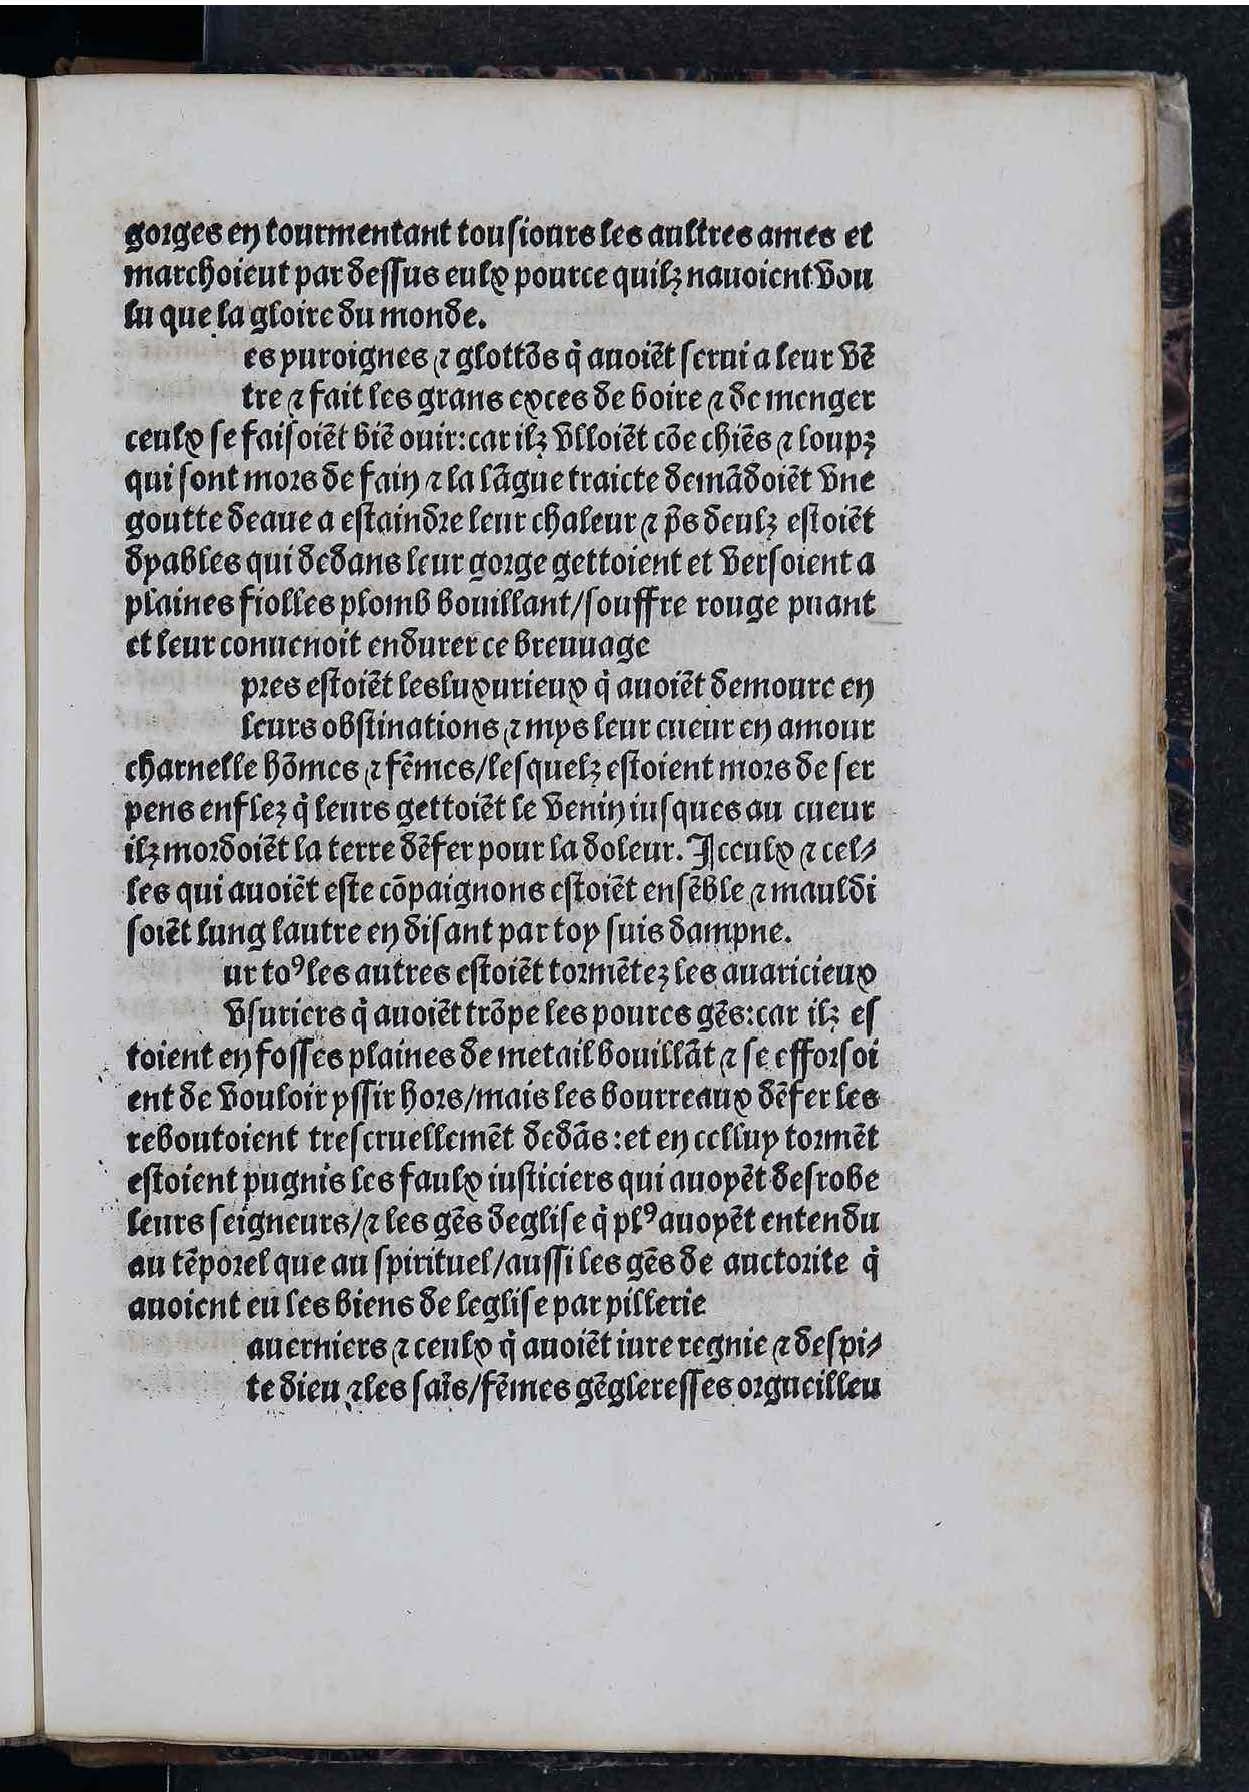 gorges en tourmentant tousiours les aultres ames et
marchoieut par dessus eulx pource quilz nauoient vou
lu que la gloire du monde.
es yuroignes ⁊ glottōs q̄ auoiēt serui a leur vē
tre ⁊ fait les grans exces de boire ⁊ de menger
ceulx se faisoiēt biē ouir: car ilz vlloiēt cōe chiēs ⁊ loupz
qui sont mors de fain ⁊ la lāgue traicte demādoiēt vne
goutte deaue a estaindre leur chaleur ⁊ p̄s deulz estoiēt
dyables qui dedans leur gorge gettoient et versoient a
plaines fiolles plomb bouillant/souffre rouge puant
et leur conuenoit endurer ce breuuage
pres estoiēt les luxurieux q̄ auoiēt demoure en
leurs obstinations ⁊ mys leur cueur en amour
charnelle hōmes ⁊ fēmes/lesquelz estoient mors de ser
pens enflez q̄ leurs gettoiēt le venin iusques au cueur
ilz mordoiēt la terre dēfer pour la doleur. Iceulx ⁊ cel⸗
les qui auoiēt este cōpaignons estoiēt ensēble ⁊ mauldi
soiēt lung lautre en disant par toy suis dampne.
ur toꝰ les autres estoiēt tormētez les auaricieux
vsuriers q̄ auoiēt trōpe les poures gēs: car ilz es
toient en fosses plaines de metail bouillāt ⁊ se efforsoi
ent de vouloir yssir hors/mais les bourreaux dēfer les
reboutoient trescruellemēt dedās: et en celluy tormēt
estoient pugnis les faulx iusticiers qui auoyēt desrobe
leurs seigneurs/⁊ les gēs deglise q̄ plꝰ auoyēt entendu
au tēporel que au spirituel/aussi les gēs de auctorite q̄
auoient eu les biens de leglise par pillerie
auerniers ⁊ ceulx q̄ auoiēt iure regnie ⁊ despi⸗
te dieu ⁊ les saīs/fēmes gēgleresses orgueilleu